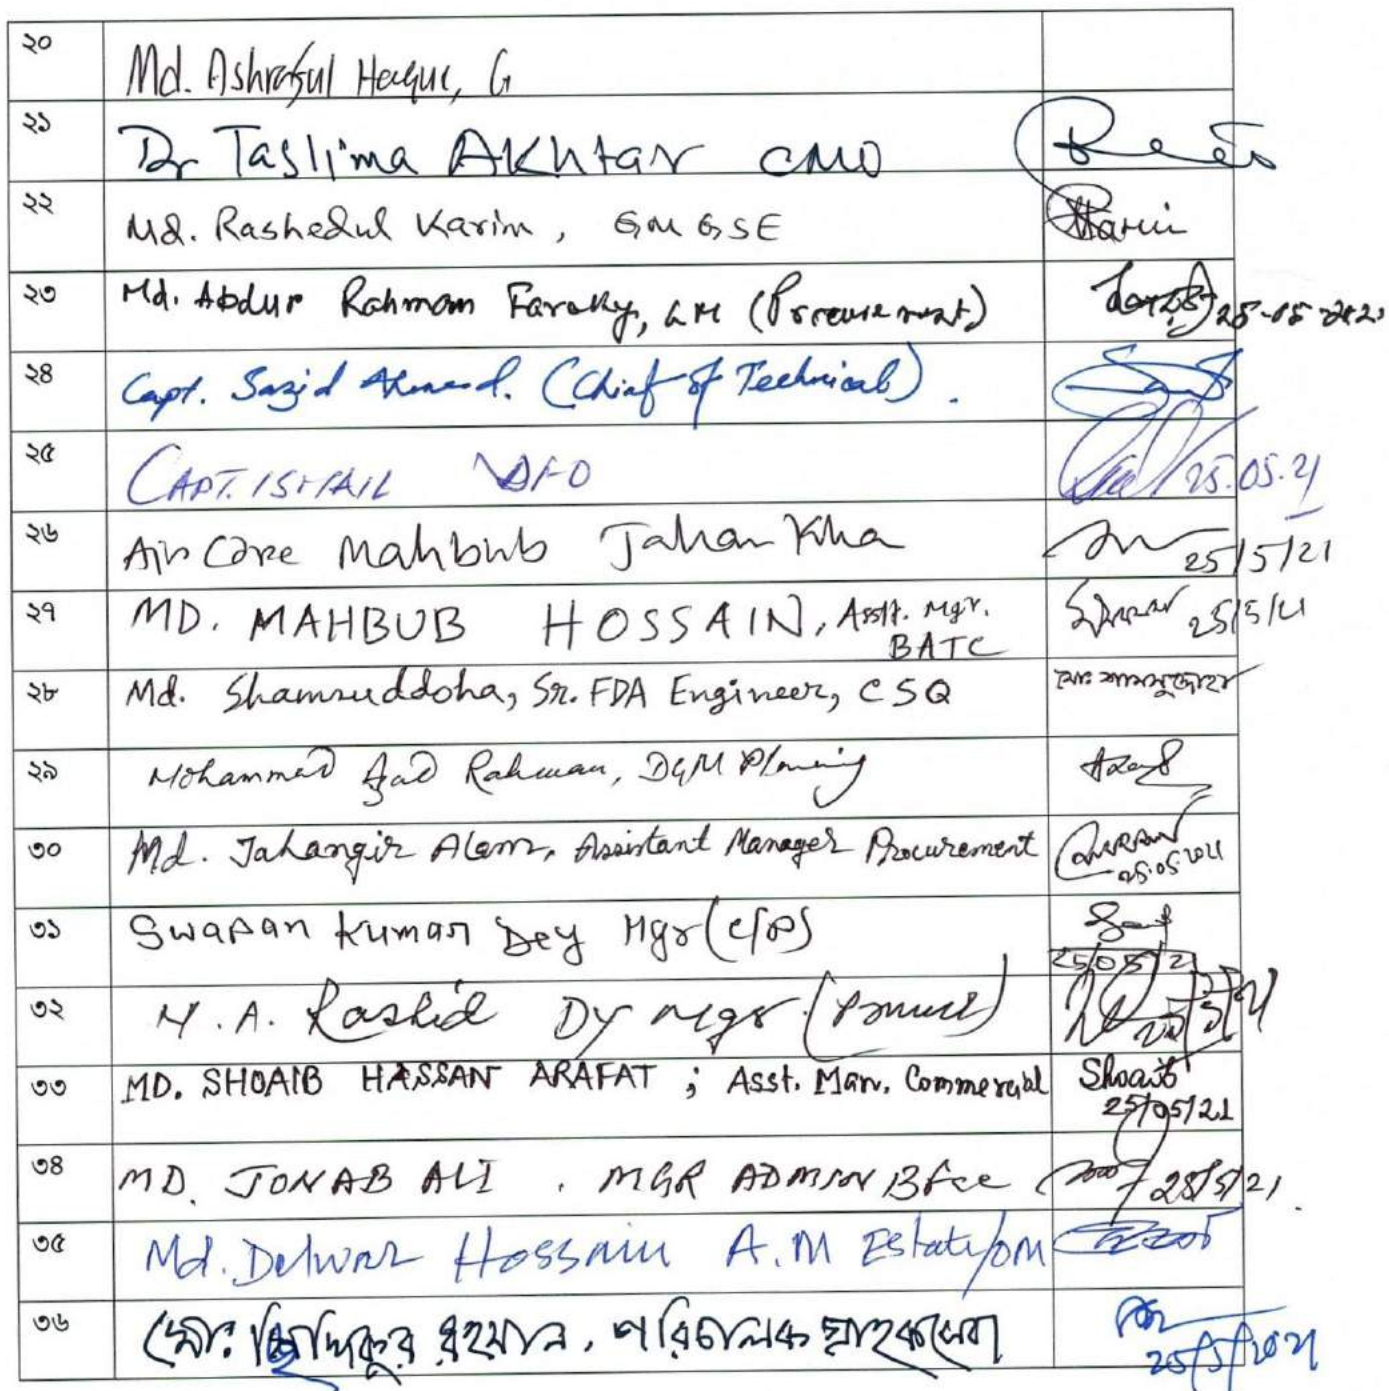 ২০ Md. Ashraful Haque, G
২১ Dr Taslima AKhtar CMO
২২ Md. Rashedul Karim, GM GSE Karim
২৩ Md. Abdur Rahman Faroky, GM (Procurement) 25-05-2021
২৪ Capt. Sazid Ahmed. (Chief of Technical).
২৫ CAPT. ISMAIL DFO 25.05.21
২৬ Air Cdre Mahbub Jahan Kha 25/5/21
২৭ MD. MAHBUB HOSSAIN, Asstt. Mgr. 25/5/21
BATC
২৮ Md. Shamsuddoha, Sr. FDA Engineer, CSQ মোঃ শামসুদ্দোহা
২৯ Mohammad Azad Rahman, DGM Planning Azad
৩০ Md. Jahangir Alam, Assistant Manager Procurement
25.05.2021
৩১ Swapan Kumar Dey Mgr (C/P)
25/05/21
৩২ M. A. Rashid Dy Mgr.
৩৩ MD. SHOAIB HASSAN ARAFAT ; Asst. Man. Commercial Shoaib
25/05/21
৩৪ MD. JONAB ALI . MGR ADMIN BFCC 25/5/21.
৩৫ Md. Delwar Hossain A.M Estate/OM
৩৬ মোঃ ছিদ্দিকুর রহমান, পরিচালক গ্রাহকসেবা
25/5/2021